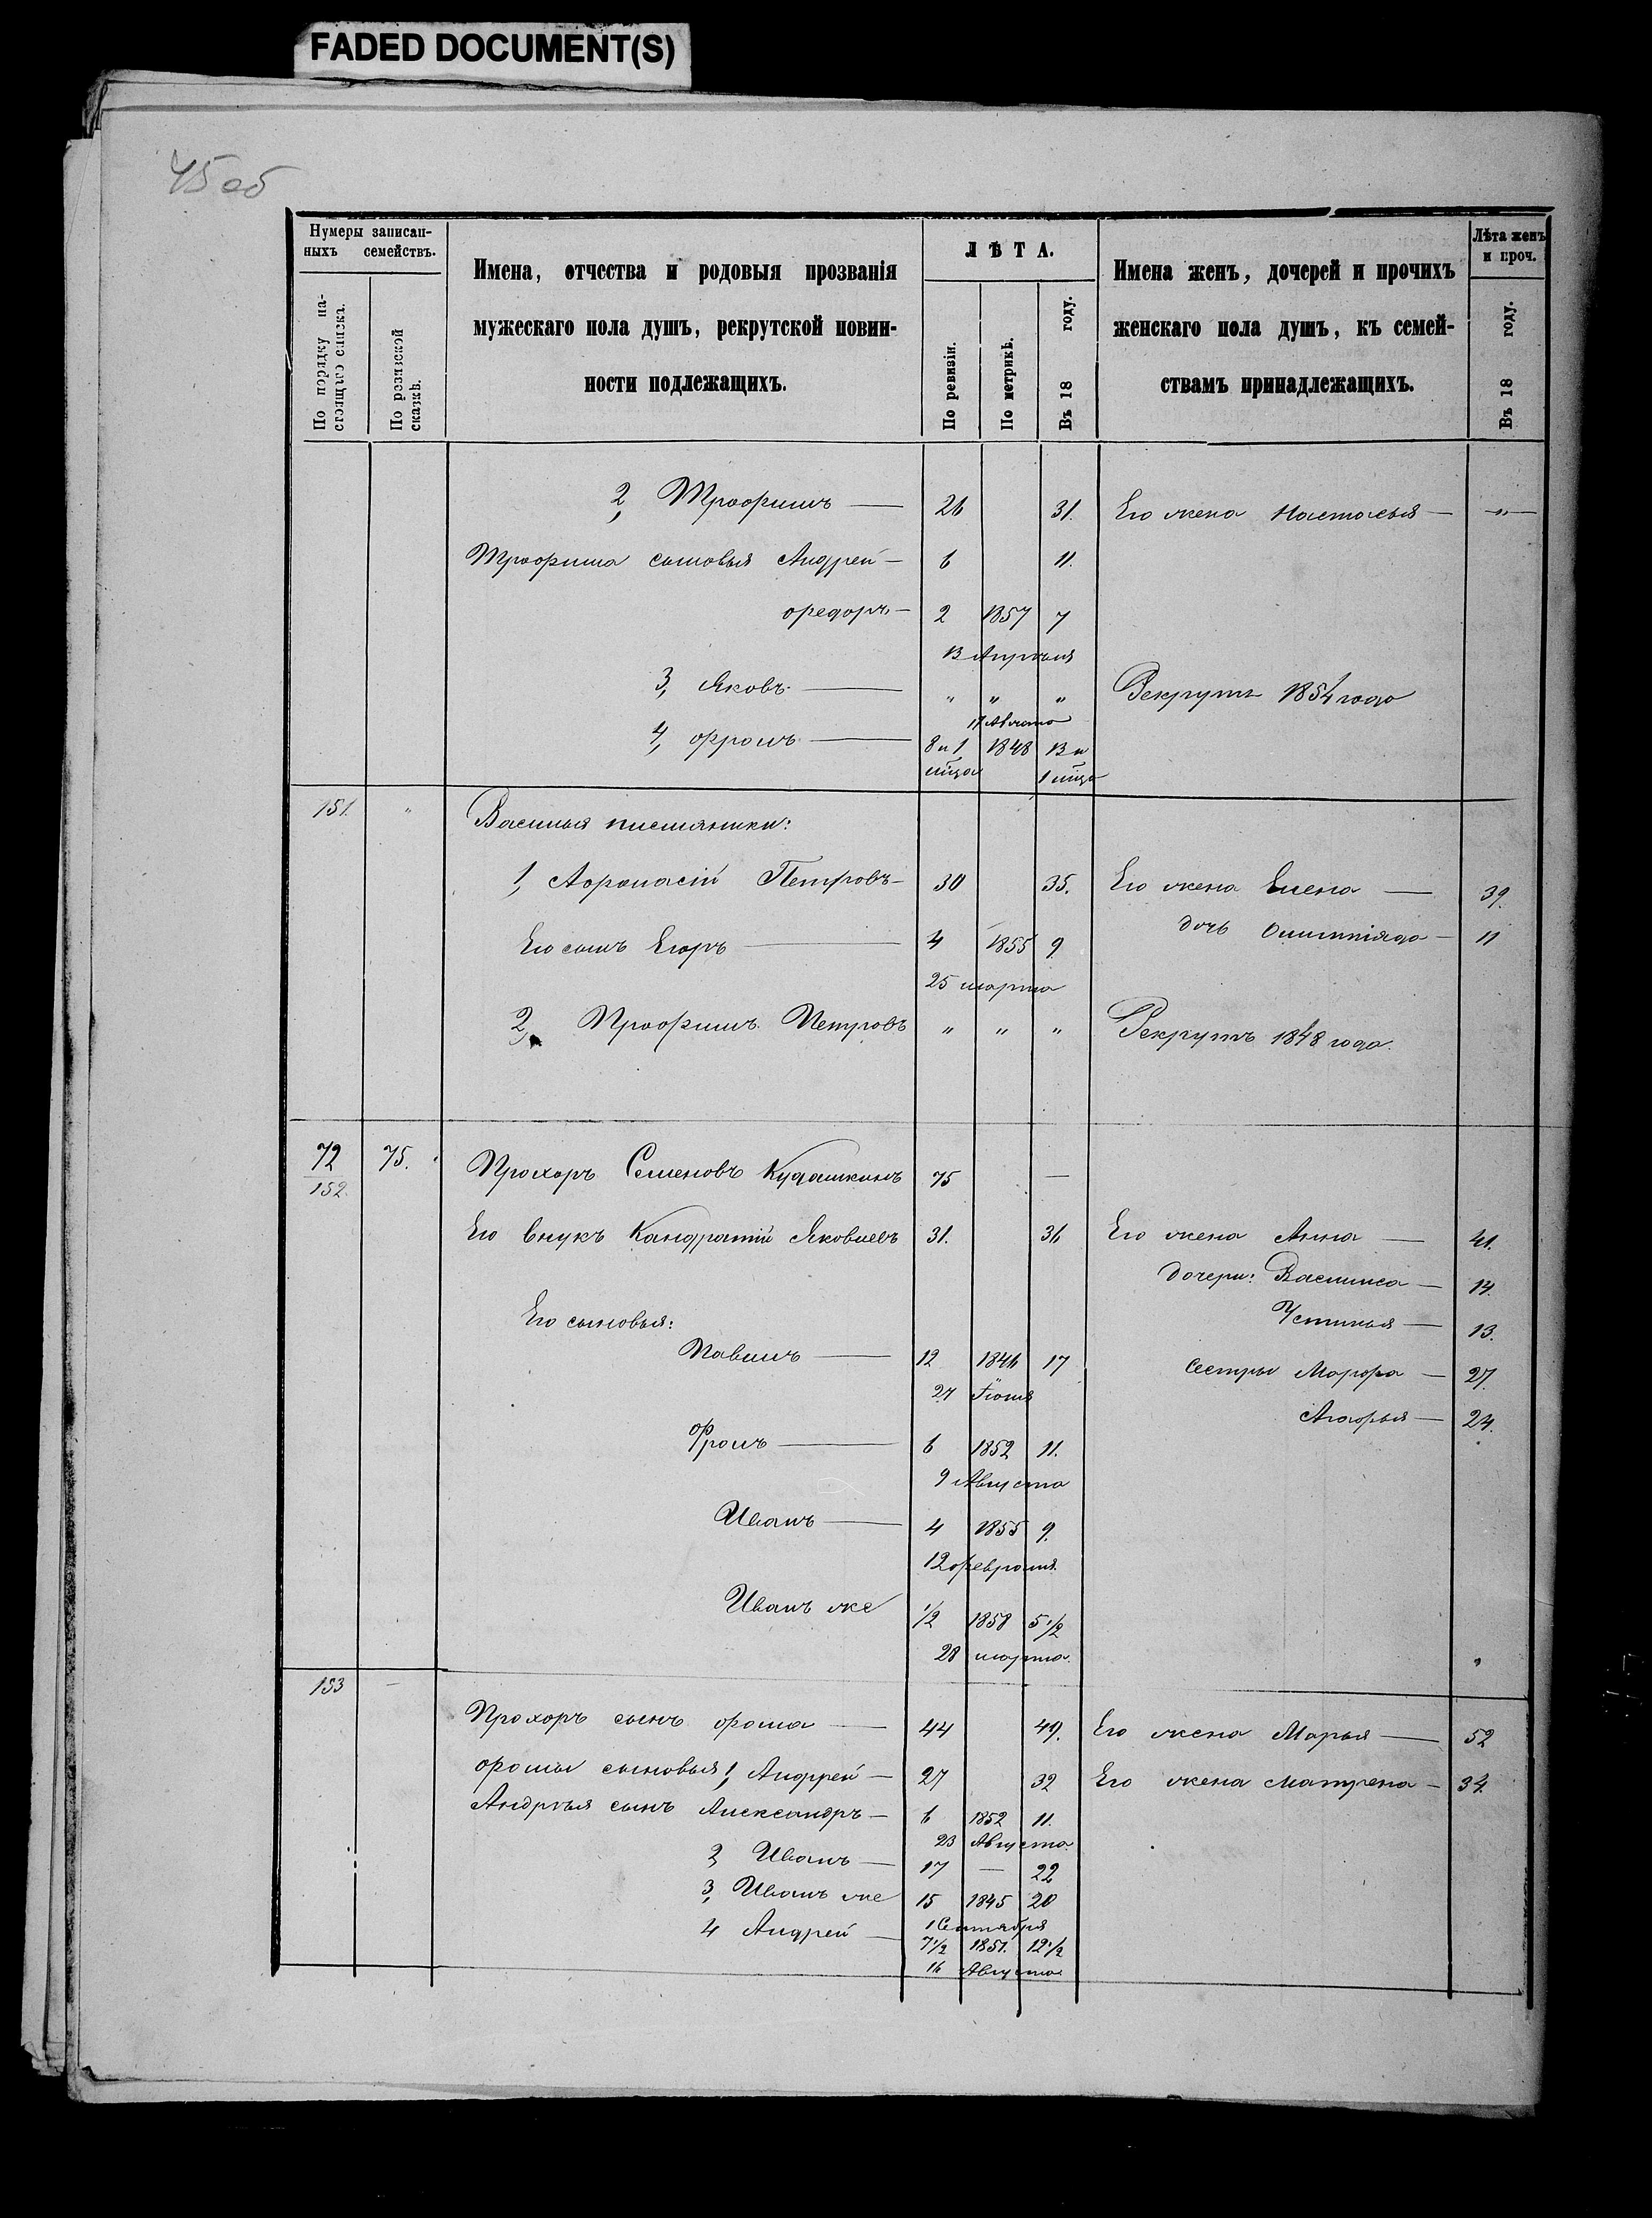 FADED DOCUMENT(S)
45 об
Нумеры записан-
ныхъ семействъ.
По порядку на-
стоящаго списка.
По ревизской
сказкѣ.
Имена, отчества и родовыя прозванія
мужескаго пола душъ, рекрутской повин-
ности подлежащихъ.
ЛѢТА.
По ревизіи.
По метрикѣ.
Въ 18 году.
Имена женъ, дочерей и прочихъ
женскаго пола душъ, къ семей-
ствамъ принадлежащихъ.
Лѣта женъ
и проч.
Въ 18 году.
2, Трофимъ — 26 31. Его жена Настасья — "
Трофима сыновья Андрей — 6 11.
Федоръ — 2 1857 7
13 Апрѣля
3, Яковъ — " " " Рекрутъ 1854 года
17 Августа
4, Фролъ — 8 и 1 1848 13 и
мѣца 1 мѣца
151. " Василья племянники:
1, Афонасій Петровъ — 30 35. Его жена Елена — 39.
дочь Олимпіяда — 11
Его сынъ Егоръ — 4 1855 9.
25 марта
2, Трофимъ Петровъ " " " Рекрутъ 1848 года.
72 75. Прохоръ Семеновъ Кудашкинъ 75 —
152.
Его внукъ Кандратій Яковлевъ 31. 36 Его жена Анна — 41.
дочери: Василиса — 14.
Его сыновья: Устинья — 13.
Павилъ — 12 1846 17
сестры Марфа — 27.
27 Іюня
Агафья — 24.
Фролъ — 6 1852 11.
9 Августа
Иванъ — 4 1855 9.
12 февраля.
Иванъ же 1/2 1858 5 1/2
28 марта.
153 —
Прохоръ сынъ Фома — 44 49. Его жена Марья — 52
Фомы сыновья 1, Андрей — 27 32 Его жена Матрена — 34.
Андрѣя сынъ Александръ — 6 1852 11.
23 Августа.
2, Иванъ — 17 — 22
3, Иванъ же 15 1845 20
1 Сентября
4 Андрей — 7 1/2 1851. 12 1/2
16 Августа